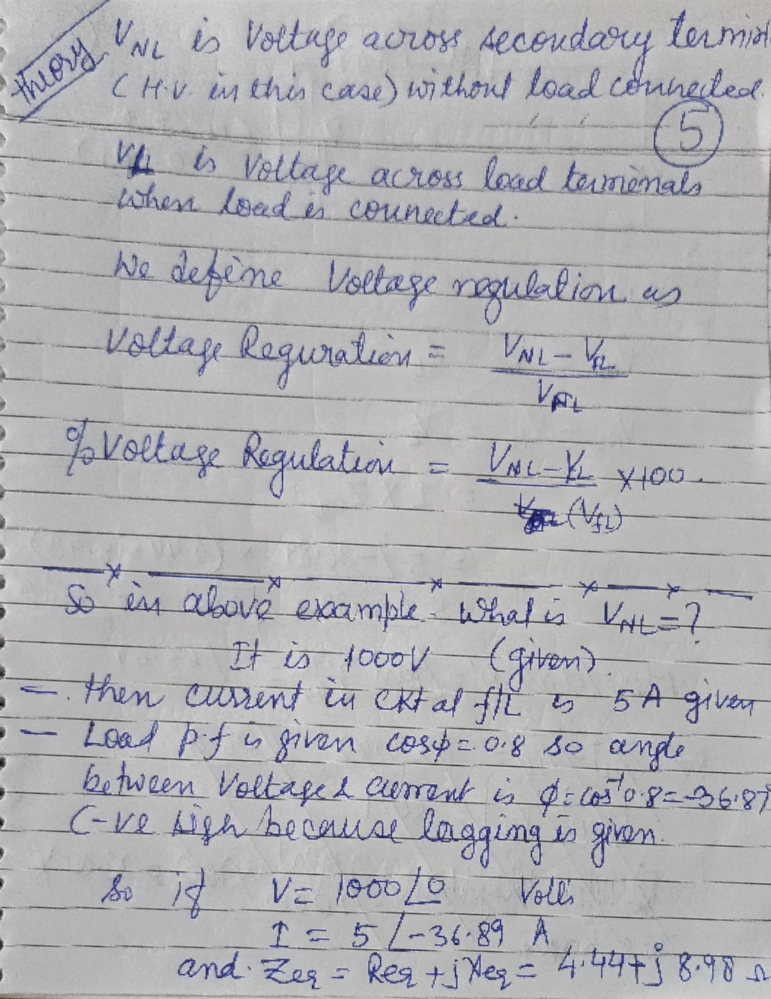 Theory
V_NL is Voltage across secondary termin
(H.V. in this case) without load connected.
5
V_fL is Voltage across load termenals
when load is connected.
We define Voltage regulation as
Voltage Reguration = (V_NL - V_fL) / V_NL
% Voltage Regulation = (V_NL - V_fL) / (V_fL) × 100.
So in above example. What is V_NL = ?
It is 1000V (given).
- then current in ckt at f/L is 5 A given
- Load p.f is given cosφ = 0.8 so angle
between Voltage & Current is φ = cos⁻¹0.8 = -36.87
(-ve sign because lagging is given.
So if V = 1000∠0 Volts
I = 5∠-36.89 A
and. Zeq = Req + jXeq = 4.44 + j 8.98 Ω